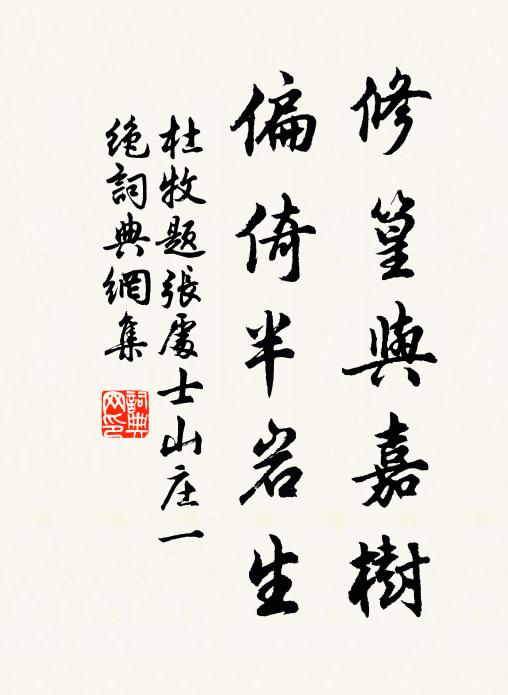 修篁與嘉樹
偏倚半岩生
杜牧題張處士山庄一
絶詞典網集
詞典网印